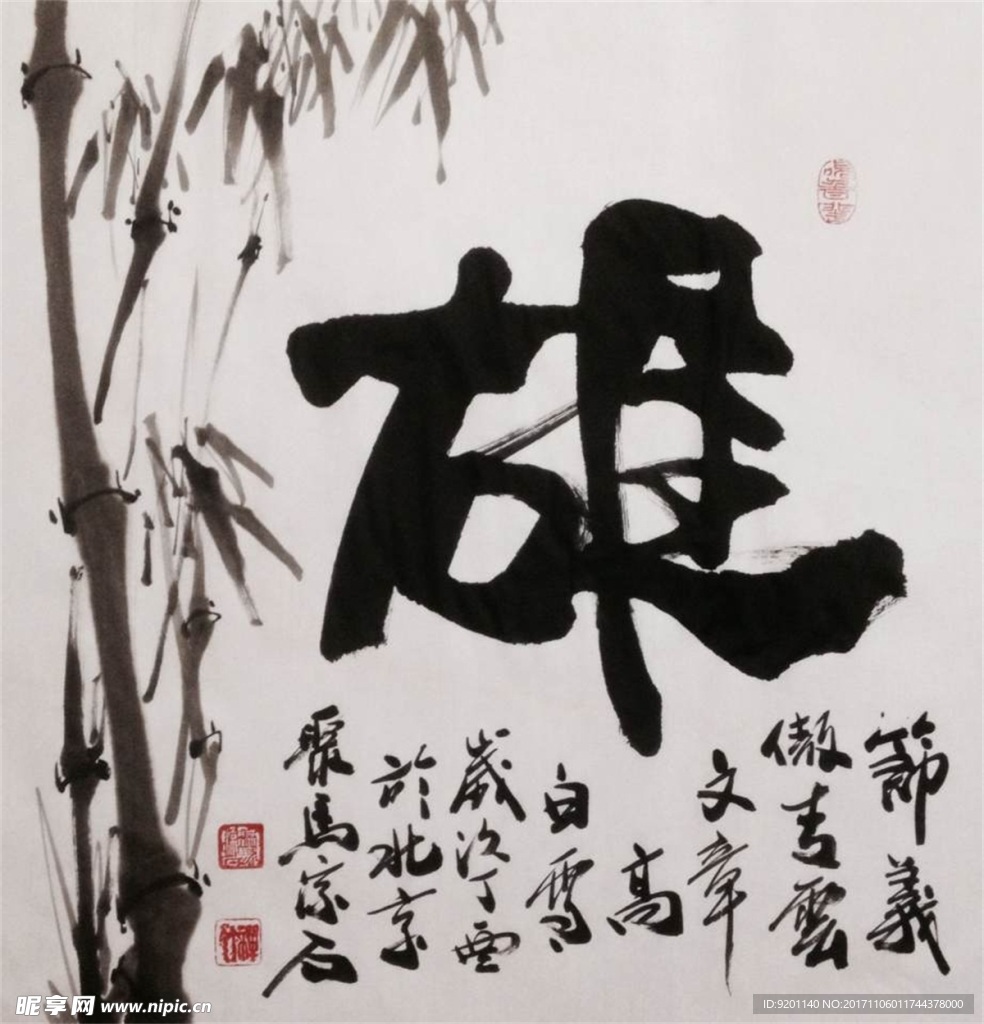 雄
節義
傲青雲
文章
高
白雪
歲次丁酉
於北京
聚馬宗石
昵享网 www.nipic.cn
ID:9201140 NO:20171106011744378000